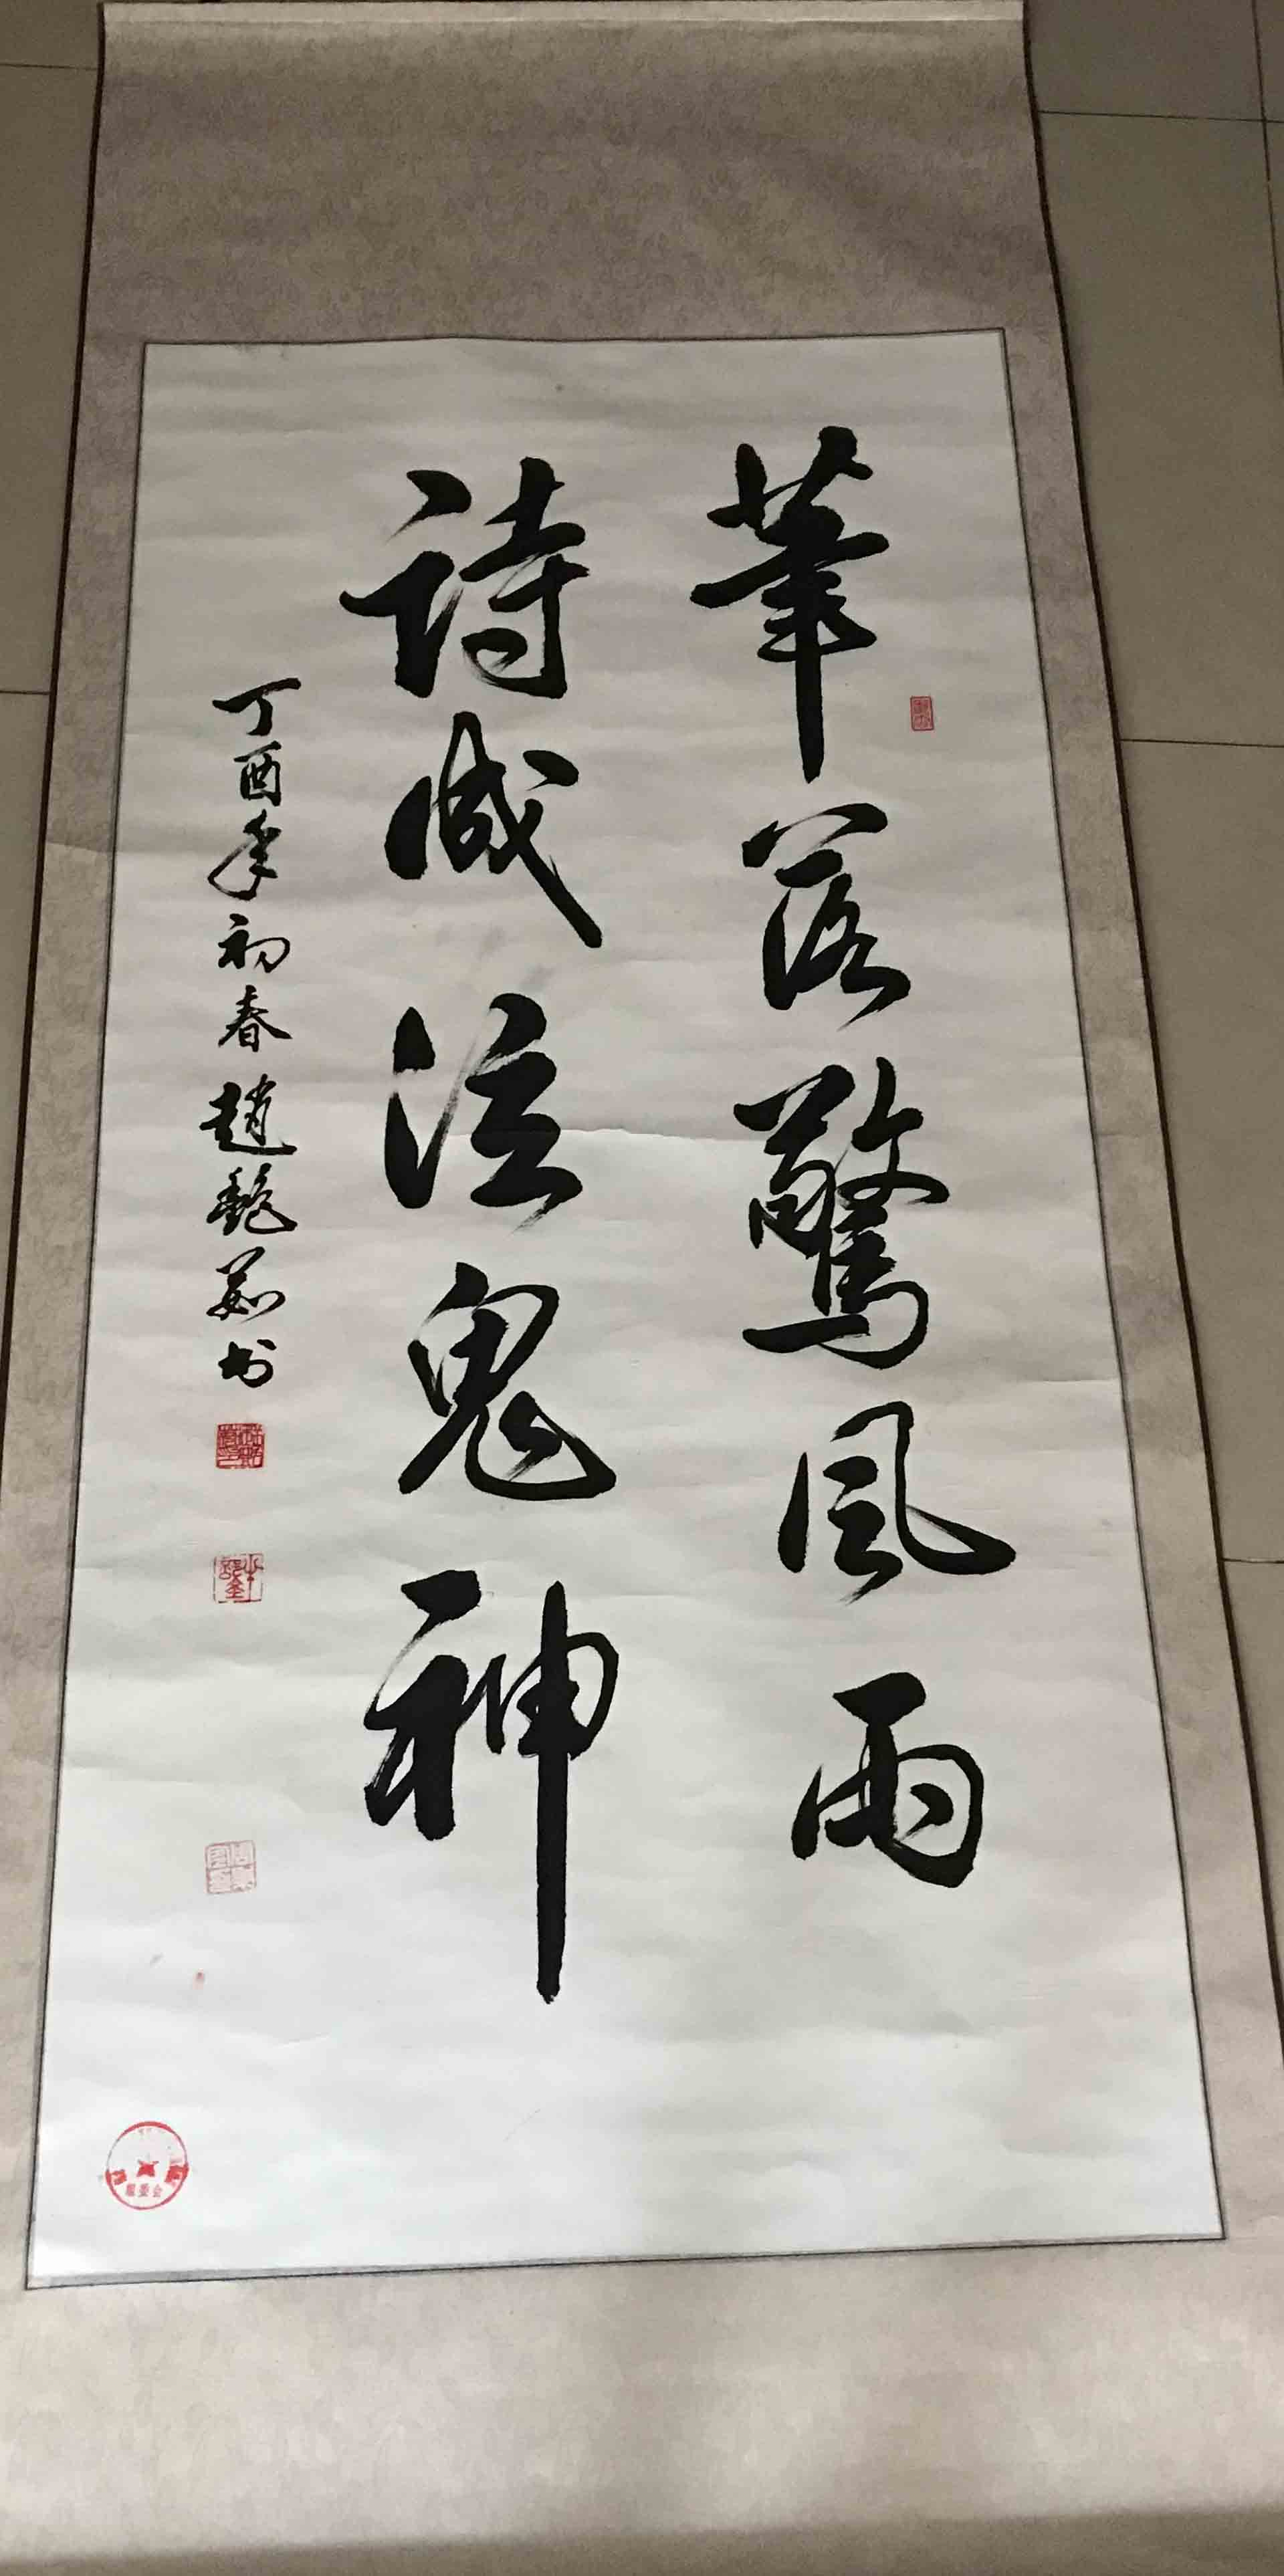 筆落驚風雨
詩成泣鬼神
丁酉年初春趙懿茹书
组委会